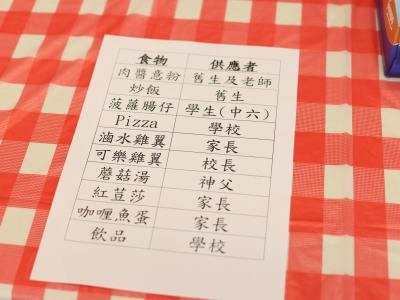 食物 供應者
肉醬意粉 舊生及老師
炒飯 舊生
菠蘿腸仔 學生(中六)
Pizza 學校
滷水雞翼 家長
可樂雞翼 校長
蘑菇湯 神父
紅荳莎 家長
咖喱魚蛋 家長
飲品 學校